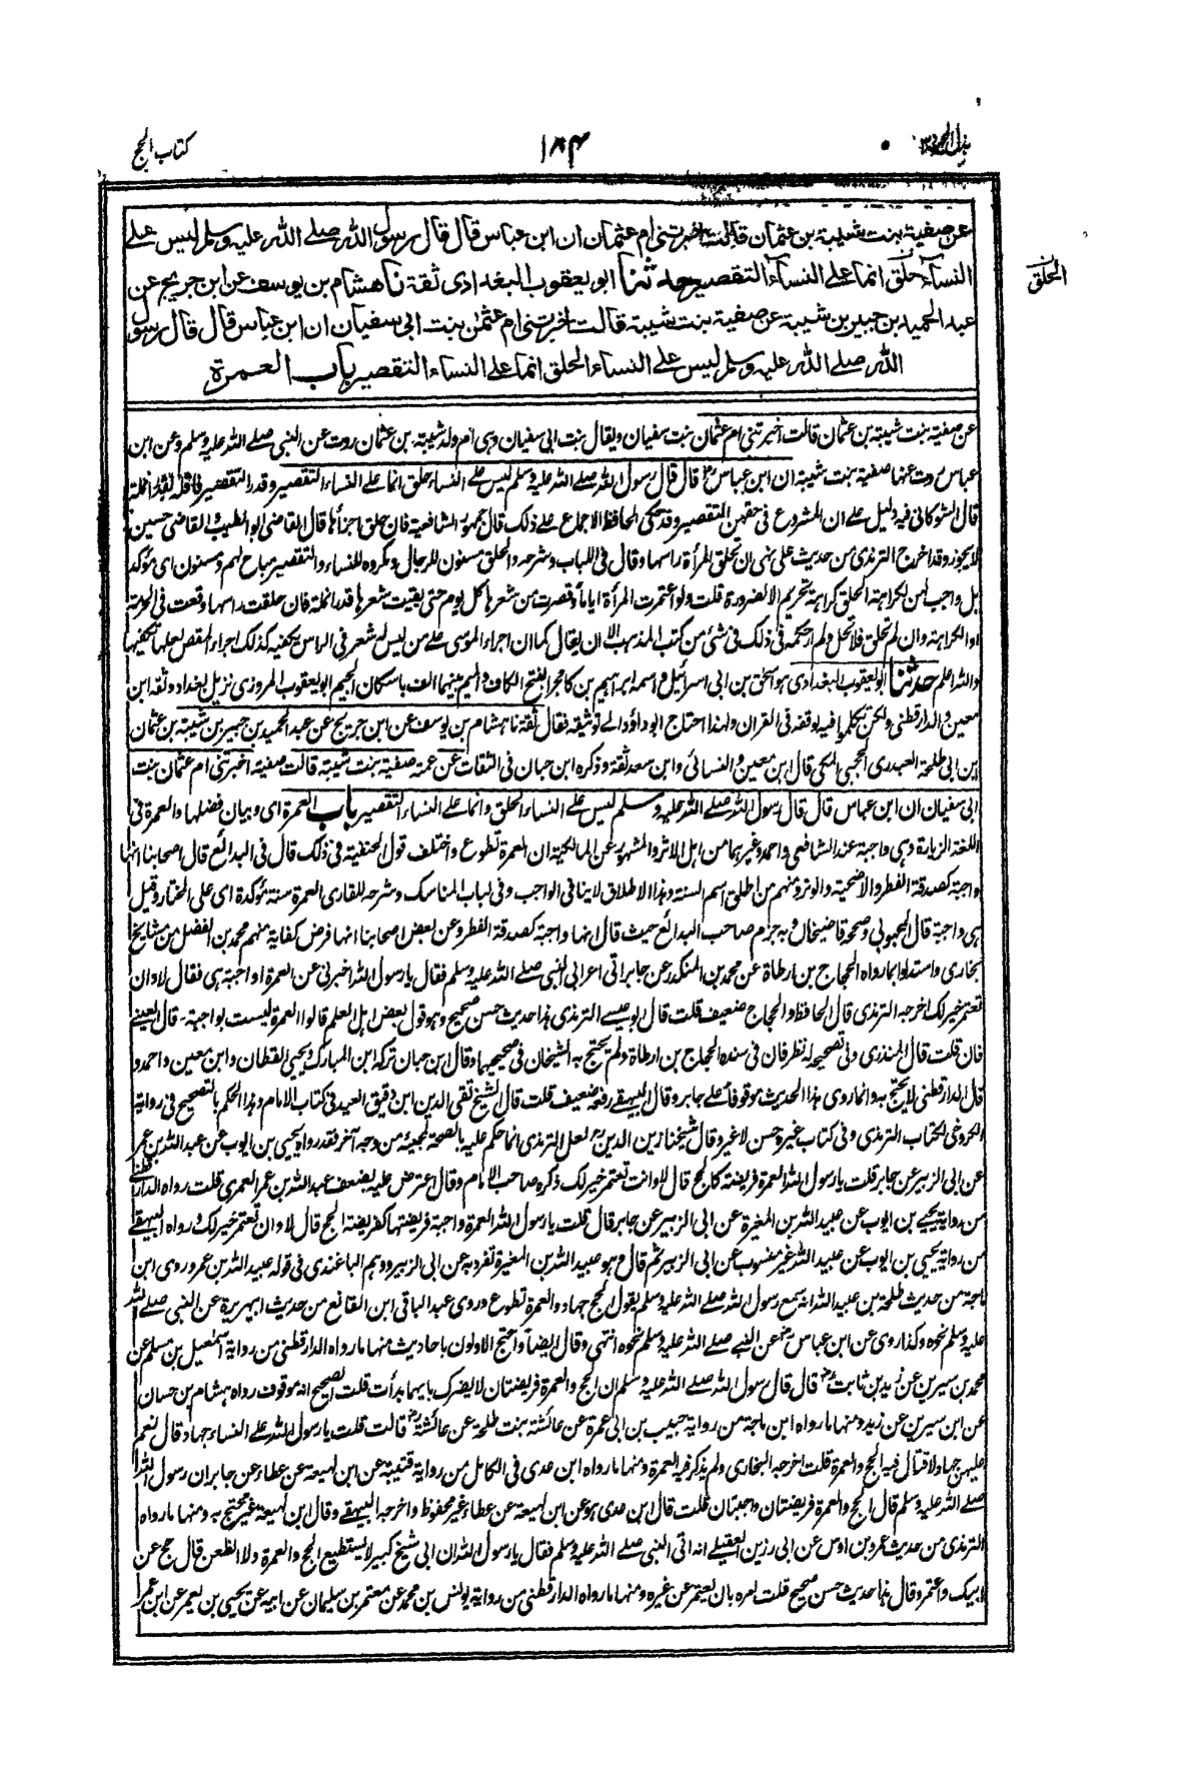 بذل المجهود ٣
١٨٤
كتاب الحج
عن صفية بنت شيبة بن عثمان قالت اخبرتني ام عثمان ان ابن عباس قال قال رسول الله صلى الله عليه وسلم ليس على
النساء حلق انما على النساء التقصير حدثنا ابو يعقوب البغدادي ثقة نا هشام بن يوسف عن ابن جريج عن
الحلق
عبد الحميد بن جبير بن شيبة عن صفية بنت شيبة قالت اخبرتني ام عثمان بنت ابي سفيان ان ابن عباس قال قال رسول
الله صلى الله عليه وسلم ليس على النساء الحلق انما على النساء التقصير باب العمرة
عن صفية بنت شيبة بن عثمان قالت اخبرتني ام عثمان بنت سفيان ويقال بنت ابي سفيان وهي ام ولد شيبة بن عثمان روت عن النبي صلى الله عليه وسلم وعن ابن
عباس روت عنها صفية بنت شيبة ان ابن عباس قال قال رسول الله صلى الله عليه وسلم ليس على النساء حلق انما على النساء التقصير وقدر التقصير فاقله بقدر انملة
قال الشوكاني فيه دليل على ان المشروع في حقهن التقصير وقد حكى الحافظ الاجماع على ذلك قال جمهور الشافعية فان حلق اجزأها قال القاضي ابو الطيب والقاضي حسين
لا يجوز وقد اخرج الترمذي من حديث علي نهى ان تحلق المرأة راسها وقال في اللباب وشرحه والحلق مسنون للرجال ومكروه للنساء والتقصير مباح لهم ومسنون اي مؤكد
بل واجب لهن لكراهة الحلق كراهة تحريم الا لضرورة قلت ولو اعتمرت المرأة اياما وقصرت من شعرها كل يوم حتى بقيت شعرها قدر انملة فان حلقت راسها وقعت في الحرمة
او الكراهة وان لم تحلق فلا تحل ولم ار حكمه في ذلك في شئ من كتب المذهب الا ان يقال كما ان اجراء الموسى على من ليس له شعر في الراس يكفيه كذلك اجراء المقص لعلها تكفيها
والله اعلم حدثنا ابو يعقوب البغدادي هو اسحق بن ابي اسرائيل واسمه ابراهيم بن كامجرا بفتح الكاف والميم بينهما الف باسكان الجيم ابو يعقوب المروزي نزيل بغداد وثقه ابن
معين والدارقطني ولكن تكلموا فيه لوقفه في القران ولهذا احتاج ابو داؤد الى توثيقه فقال ثقة نا هشام بن يوسف عن ابن جريج عن عبد الحميد بن جبير بن شيبة بن عثمان
بن ابي طلحة العبدري الحجبي المكي قال ابن معين والنسائي وابن سعد ثقة وذكره ابن حبان في الثقات عن عمته صفية بنت شيبة قالت صفية اخبرتني ام عثمان بنت
ابي سفيان ان ابن عباس قال قال رسول الله صلى الله عليه وسلم ليس على النساء الحلق وانما على النساء التقصير باب العمرة اي وبيان فضلها والعمرة في
اللغة الزيارة وهي واجبة عند الشافعي واحمد وغيرهما من اهل الاثر والمشهور عن المالكية ان العمرة تطوع واختلف قول الحنفية في ذلك قال في البدائع قال اصحابنا انها
واجبة كصدقة الفطر والاضحية والوتر ومنهم من اطلق اسم السنة وهذا الاطلاق لا ينافي الواجب وفي لباب المناسك وشرحه للقاري العمرة سنة مؤكدة اي على المختار وقيل
هي واجبة قال المحبوبي وصححه قاضيخان وبه جزم صاحب البدائع حيث قال انها واجبة كصدقة الفطر وعن بعض اصحابنا انها فرض كفاية منهم محمد بن الفضل من مشايخ
بخارى واستدلوا بما رواه الحجاج بن ارطاة عن محمد بن المنكدر عن جابر اتى اعرابي النبي صلى الله عليه وسلم فقال يا رسول الله اخبرني عن العمرة اواجبة هي فقال لا وان
تعتمر خير لك اخرجه الترمذي قال الحافظ والحجاج ضعيف قلت قال ابو عيسى الترمذي هذا حديث حسن صحيح وهو قول بعض اهل العلم قالوا العمرة ليست بواجبة۔ قال العيني
فان قلت قال المنذري وفي تصحيحه له نظر فان في سنده الحجاج بن ارطاة ولم يحتج به الشيخان في صحيحيهما وقال ابن حبان تركه ابن المبارك ويحيى القطان وابن معين واحمد و
قال الدارقطني لا يحتج به وانما روى هذا الحديث موقوفا على جابر وقال البيهقي رفعه ضعيف قلت قال الشيخ تقي الدين ابن دقيق العيد في كتاب الامام وهذا الحكم بالتصحيح في رواية
الكروخي لكتاب الترمذي وفي كتاب غيره حسن لا غير وقال شيخنا زين الدين لعل الترمذي انما حكم عليه بالصحة لمجيئه من وجه آخر فقد رواه يحيى بن ايوب عن عبد الله بن عمر
عن ابي الزبير عن جابر قلت يا رسول الله العمرة فريضة كالحج قال لا وانت تعتمر خير لك ذكره صاحب الامام وقال اعترض عليه بضعف عبد الله بن عمر العمري قلت رواه الدارقطني
من رواية يحيى بن ايوب عن عبيد الله بن المغيرة عن ابي الزبير عن جابر قال قلت يا رسول الله العمرة واجبة فريضتها كفريضة الحج قال لا وان تعتمر خير لك ورواه البيهقي
من رواية يحيى بن ايوب عن عبيد الله غير منسوب عن ابي الزبير ثم قال وهو عبيد الله بن المغيرة تفرد به عن ابي الزبير ووهم الباغندي في قوله عبيد الله بن عمر وروى ابن
ماجة من حديث طلحة بن عبيد الله انه سمع رسول الله صلى الله عليه وسلم يقول الحج جهاد والعمرة تطوع وروى عبد الباقي ابن القانع من حديث ابي هريرة عن النبي صلى الله
عليه وسلم نحوه وكذا روى عن ابن عباس عن النبي صلى الله عليه وسلم نحوه انتهى وقال ايضا واحتج الاولون باحاديث منها ما رواه الدارقطني من رواية اسمعيل بن مسلم عن
محمد بن سيرين عن زيد بن ثابت قال قال رسول الله صلى الله عليه وسلم ان الحج والعمرة فريضتان لا يضرك بايهما بدأت قلت الصحيح انه موقوف رواه هشام بن حسان
عن ابن سيرين عن زيد ومنها ما رواه ابن ماجة من رواية حبيب بن ابي عمرة عن عائشة بنت طلحة عن عائشة قالت قلت يا رسول الله على النساء جهاد قال نعم
عليهن جهاد لا قتال فيه الحج والعمرة قلت اخرجه البخاري ولم يذكر فيه العمرة ومنها ما رواه ابن عدي في الكامل من رواية قتيبة عن ابن لهيعة عن عطاء عن جابر ان رسول الله
صلى الله عليه وسلم قال الحج والعمرة فريضتان واجبتان قلت قال ابن عدي هو عن ابن لهيعة عن عطاء غير محفوظ واخرجه البيهقي وقال ابن لهيعة غير محتج به ومنها ما رواه
الترمذي من حديث عمرو بن اوس عن ابي رزين العقيلي انه اتى النبي صلى الله عليه وسلم فقال يا رسول الله ان ابي شيخ كبير لا يستطيع الحج والعمرة ولا الظعن قال حج عن
ابيك واعتمر وقال هذا حديث حسن صحيح قلت امره بان يعتمر عن غيره ومنها ما رواه الدارقطني من رواية يونس بن محمد عن معتمر بن سليمان عن ابيه عن يحيى بن يعمر عن ابن عمر